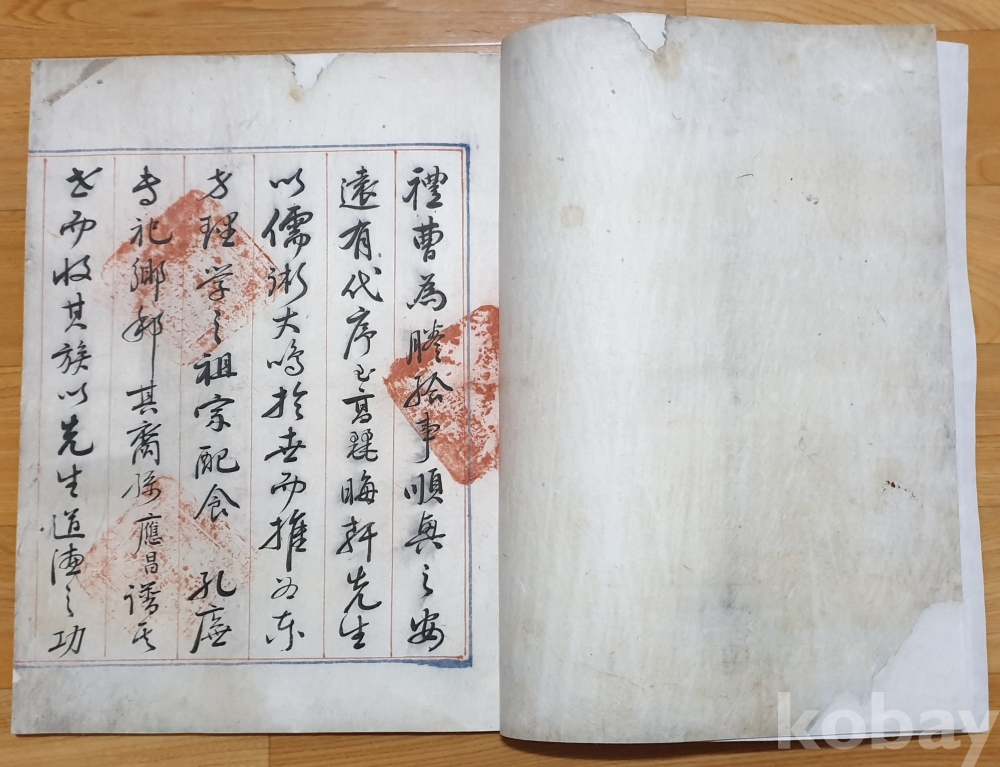 禮曹為謄給事順興之安
遠有代序至高麗晦軒先生
以儒術大鳴於世而推为東
方理学之祖宗配食 孔廡
专祀鄉邦其裔孫應昌譜其
世而收其族以先生道德之功
kobay